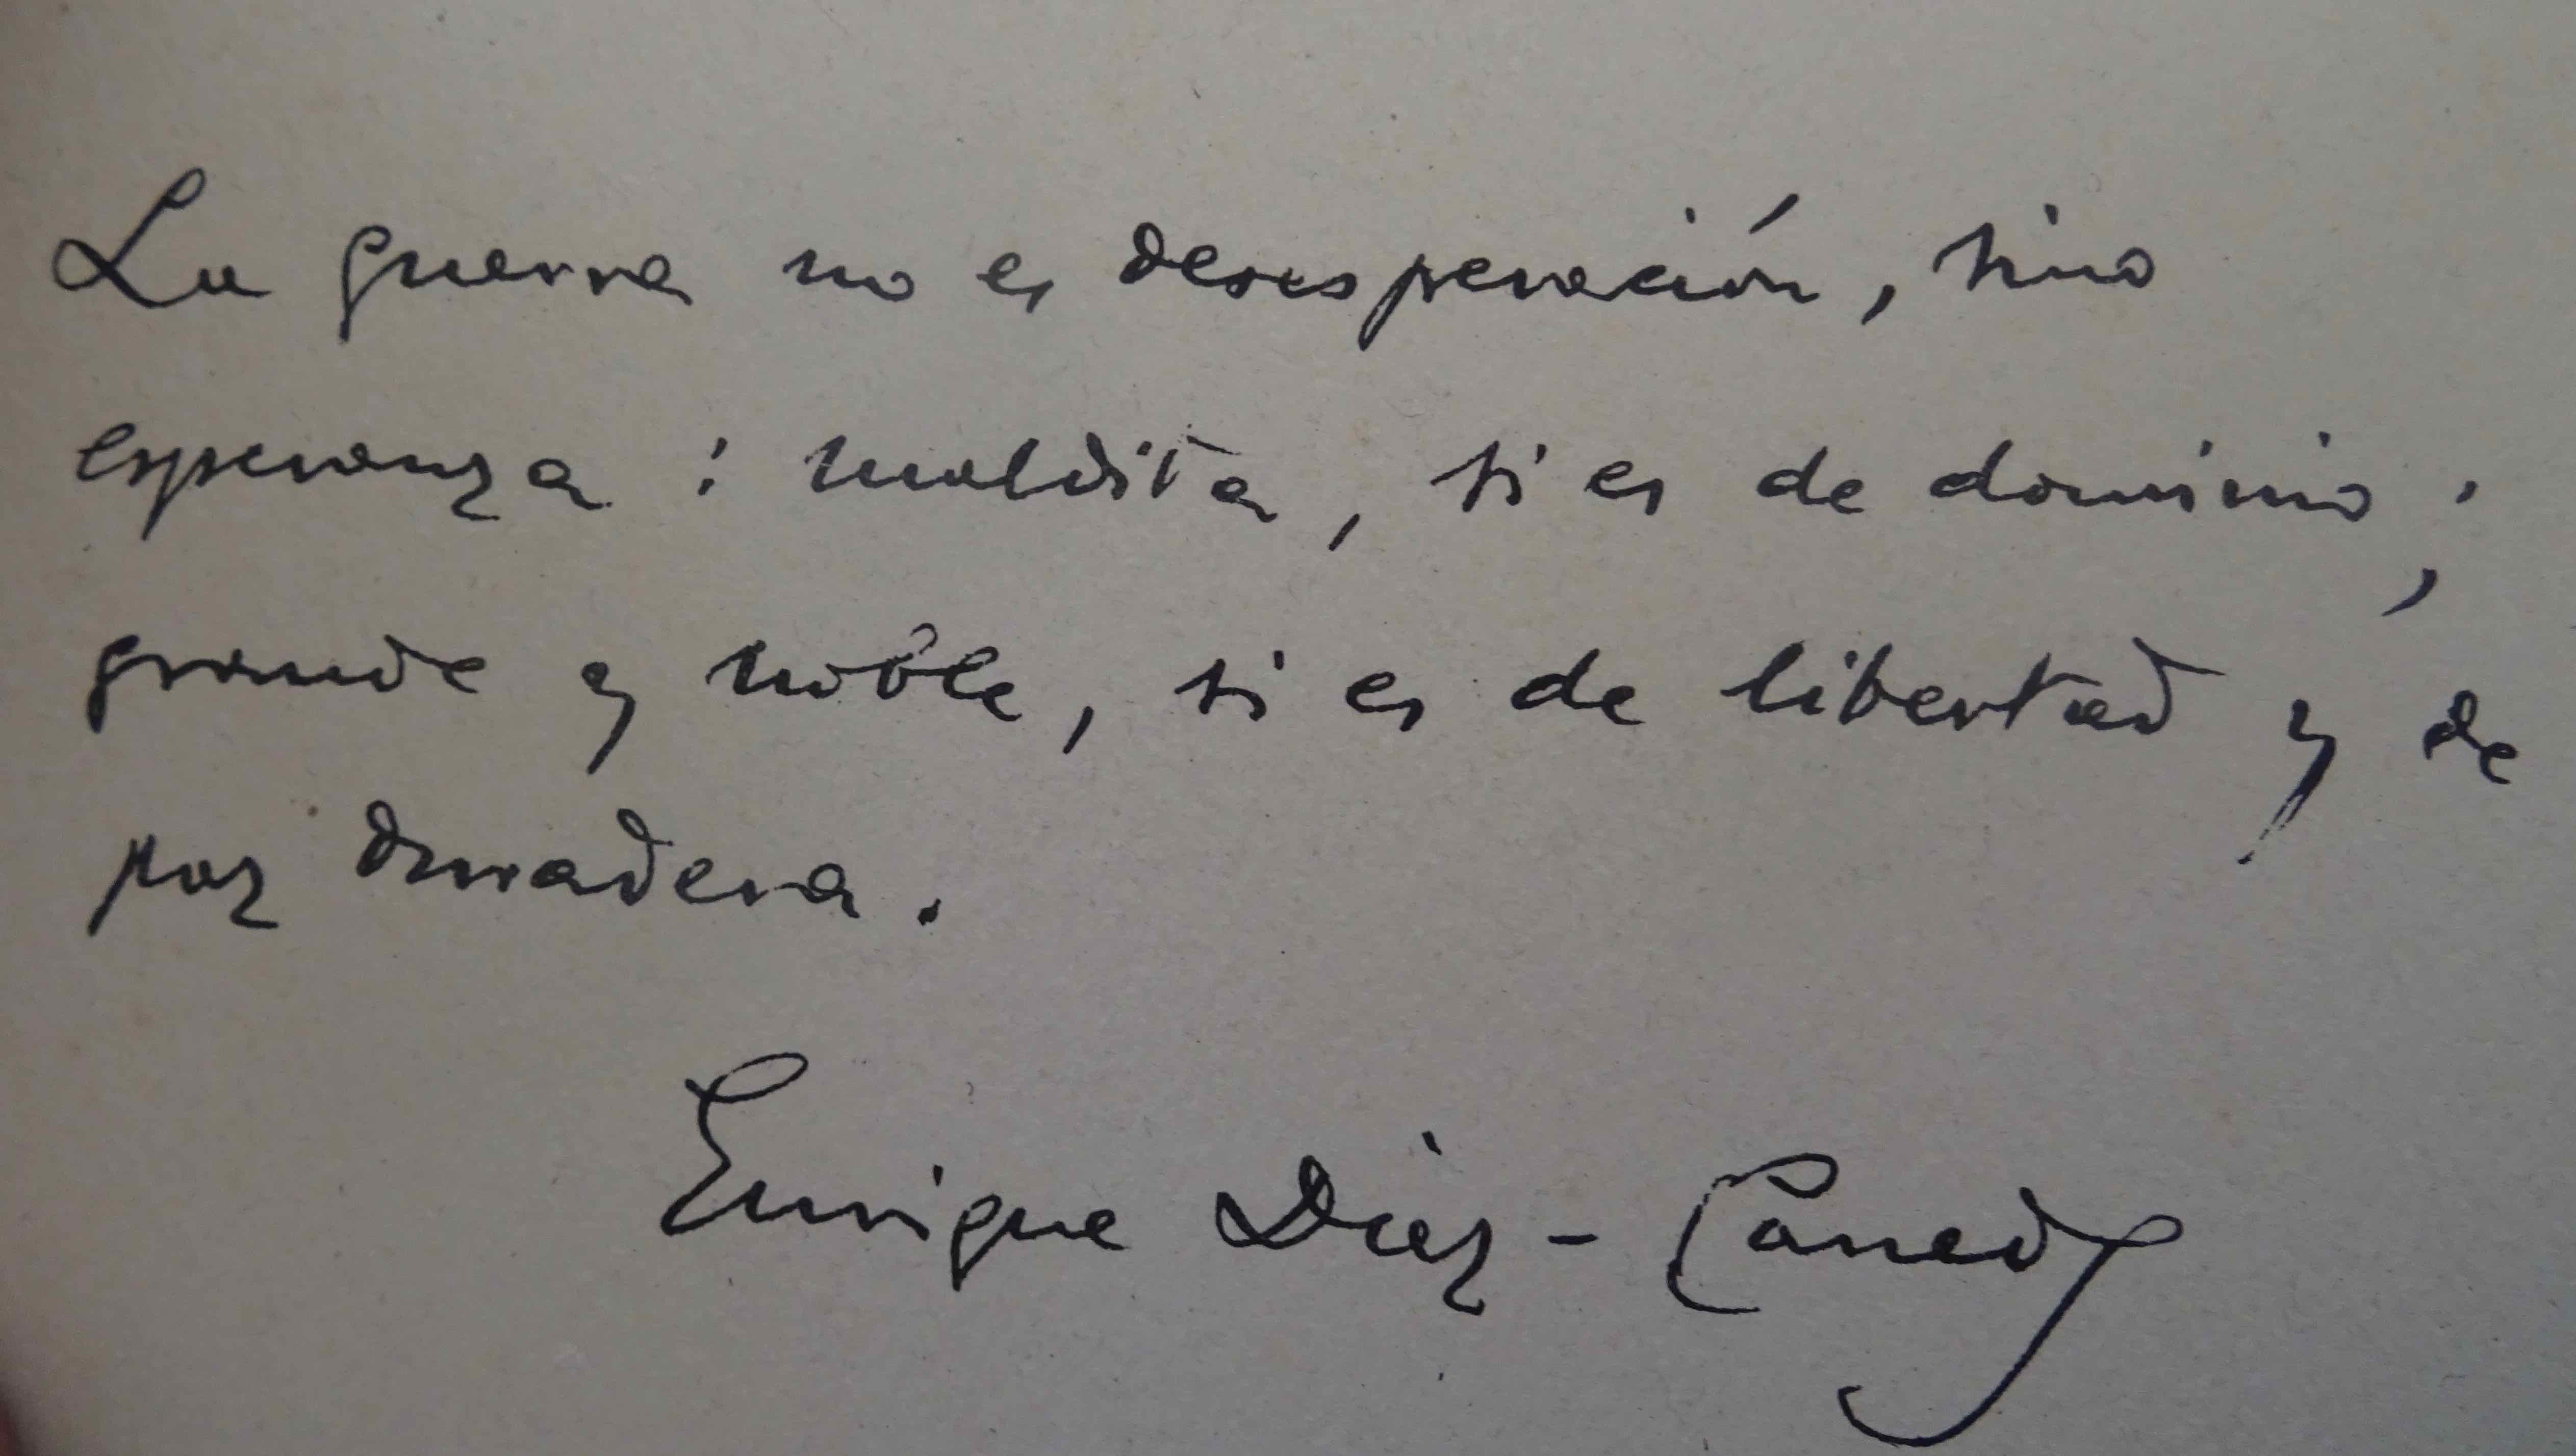 La guerra no es desesperación, sino
esperanza: maldita, si es de dominio;
grande y noble, si es de libertad y de
paz duradera.
Enrique Díez-Canedo